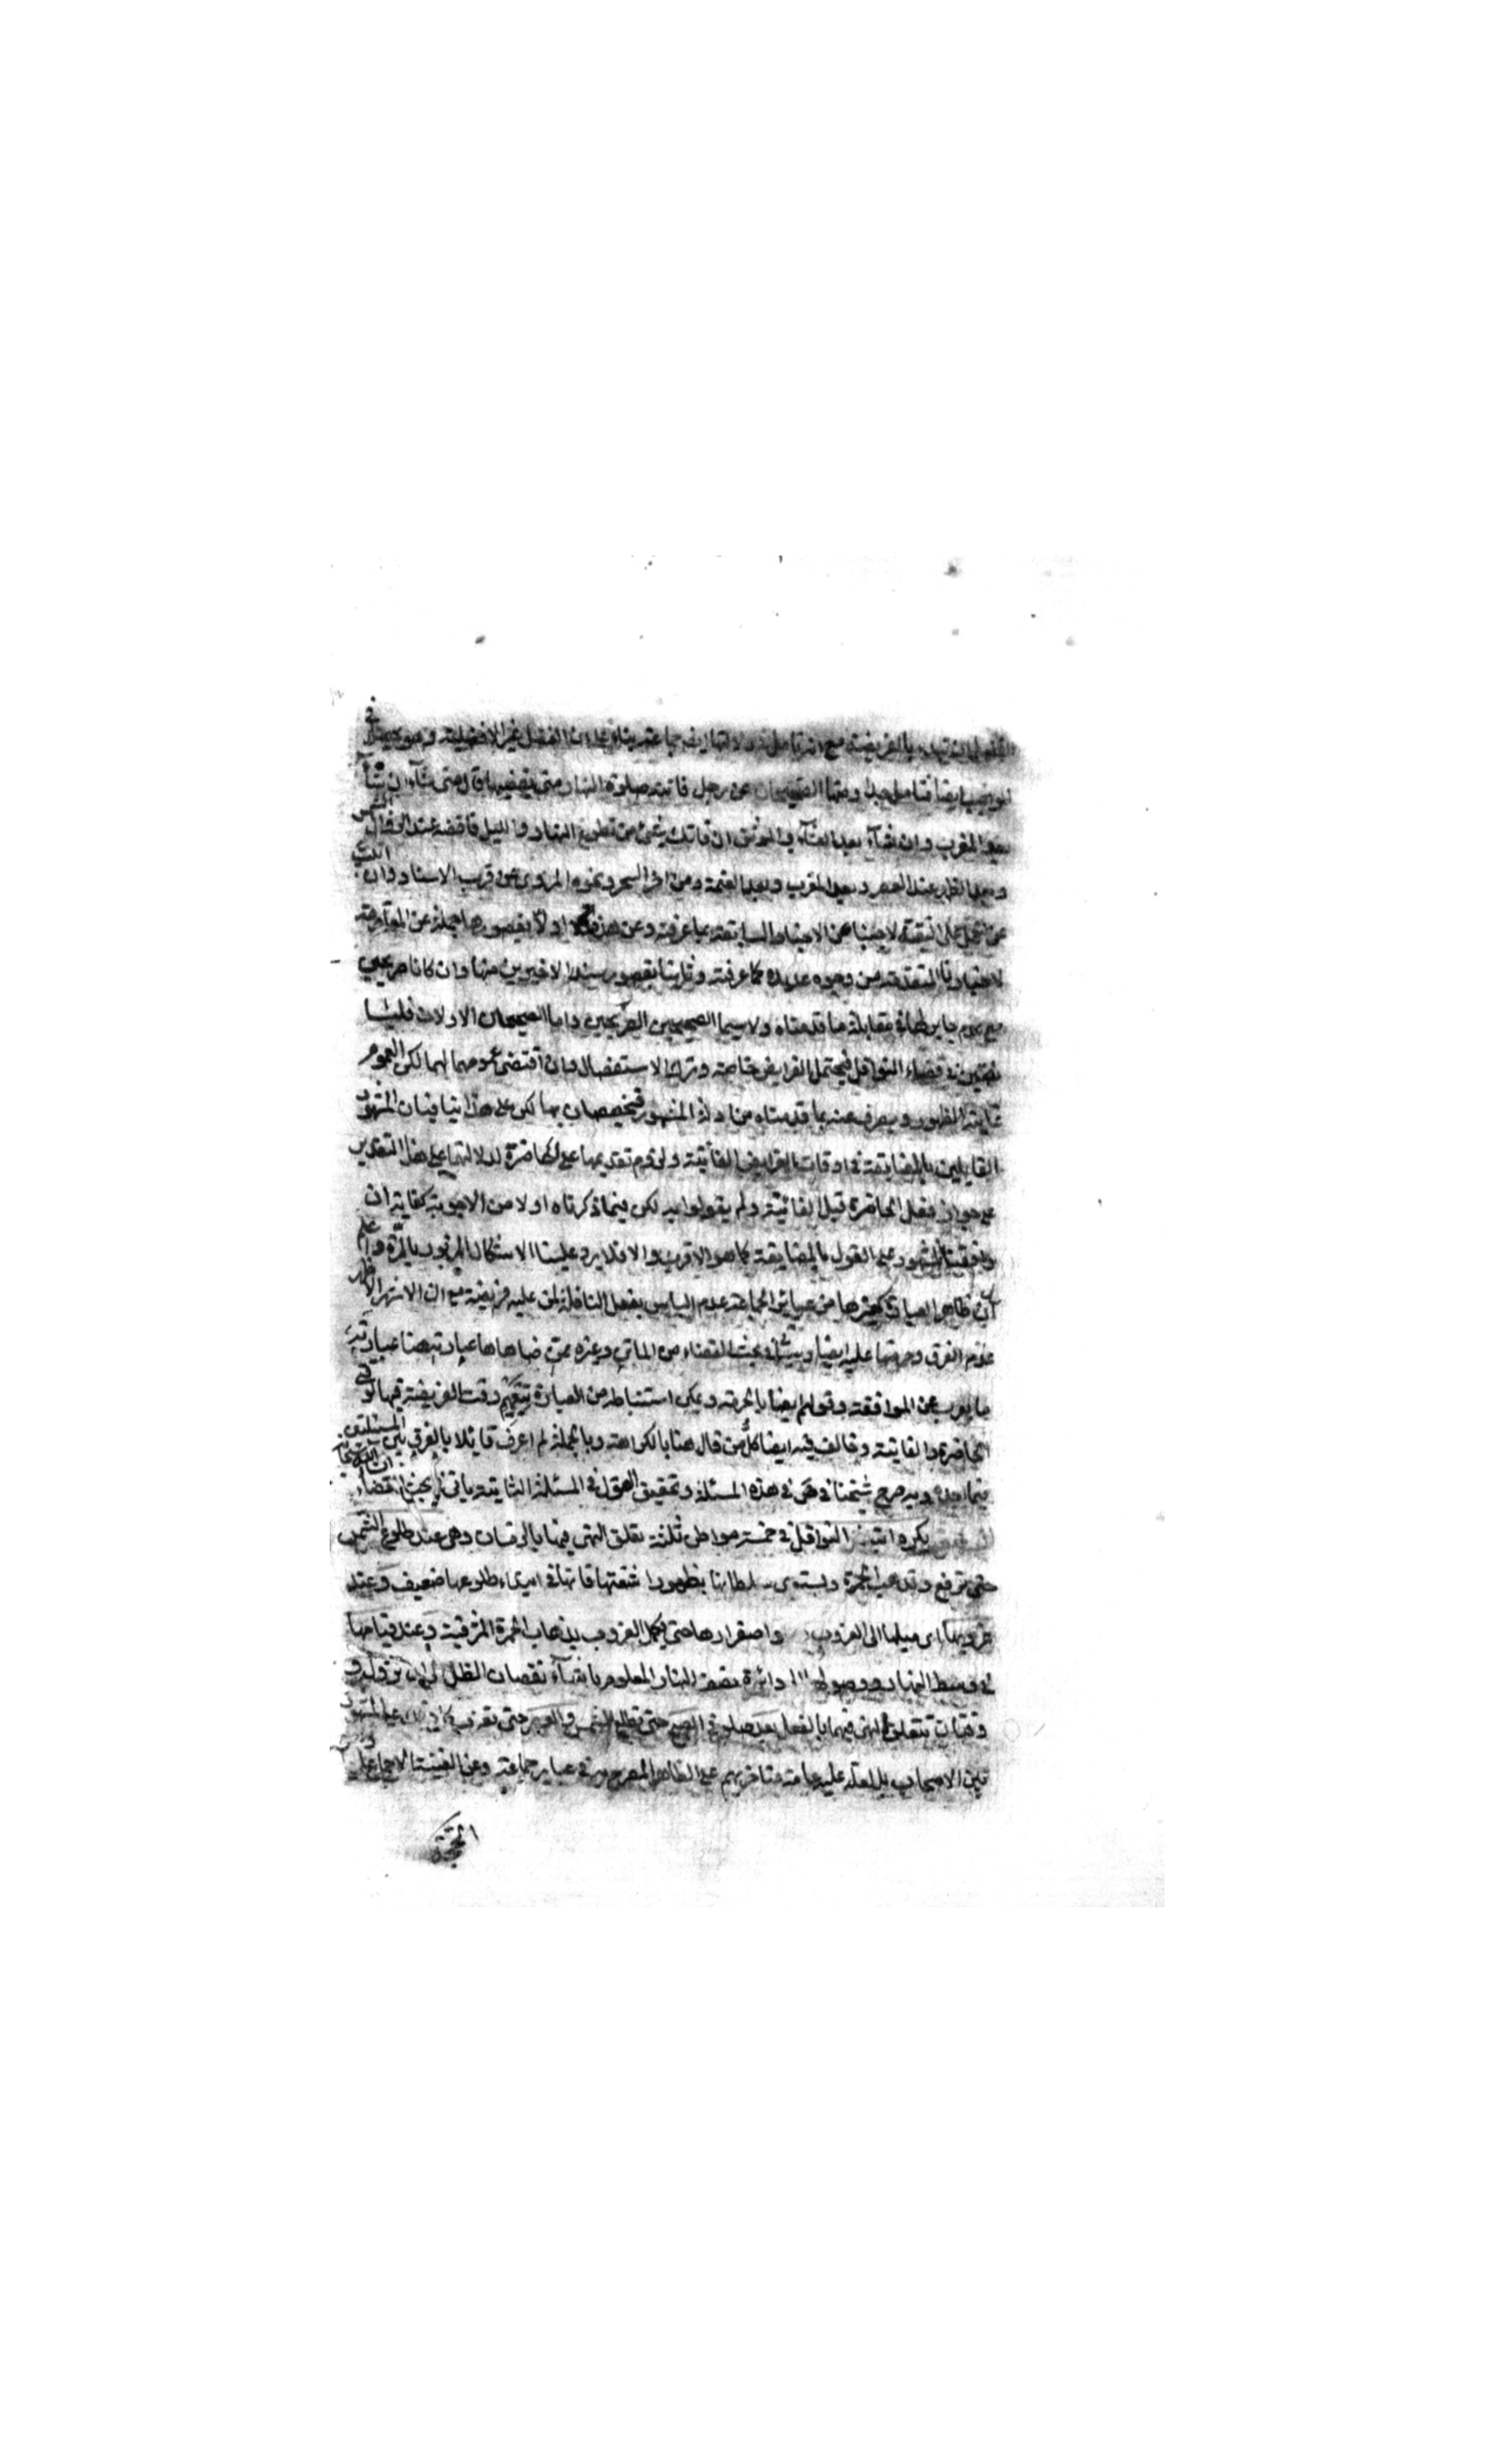 الفضل ان تبدء بالفريضة مع انه تأمل في دلالتها ايضا جماعة بناء على ان الفضل غير الافضلية وهو كما في
الوجوب ايضا فتامل جدا ومنها الصحيحان عن رجل فاتته صلوة النهار متى يقضيها قال متى شاء ان شاء
بعد المغرب وان شاء بعد العشاء والموثق ان فاتك شئ من تطوع النهار والليل فاقضه عند زوال الشمس
وبعد الظهر عند العصر وبعد المغرب وبعد العتمة ومن اخر السحر ونحوه المروي عن قرب الاسناد
عن الاخبار السابقة بما عرفته وعن هذه اولا بقصورها جملة عن المقاومة
لاخبارنا المتقدمة من وجوه عديدة كما عرفته وثانيا بقصور سند الاخيرين منها وان كانا صريحين
مع عدم جابر لهما في مقابلة ما قدمناه ولا سيما الصحيحين الصريحين واما الصحيحان الاولان فليسا
نصين في قضاء النوافل فيحتمل الفرايض خاصة وترك الاستفصال وان اقتضى عمومهما لهما لكن العموم
غايته الظهور ويصرف عنه بما قدمناه من ادلة المشهور فيخصصان بها لكن على هذا ينافيان المشهور
القايلين بالمضايقة في اوقات الفرايض الفائتة ولزوم تقديمها على الحاضرة لدلالتهما على هذا التقدير
على جواز فعل الحاضرة قبل الفائتة ولم يقولوا به لكن فيما ذكرناه اولا من الاجوبة كفاية ان
وافقنا المشهور على القول بالمضايقة كما هو الاقرب والا فلا يرد علينا الاشكال المزبور بالمرة واعلم
ان ظاهر العبارة كغيرها من عبائر الجماعة عدم الباس بفعل النافلة لمن عليه فريضة مع ان الاشهر الاظهر
عدم الفرق وحرمتها عليه ايضا وبحث القضاء من الماتن وغيره ممن ضاهاها عبارته هنا عبارته
ما يعرب عن الموافقة وقولهم ايضا بالحرمة ويمكن استنباطه من العبارة بتعميم وقت الفريضة فيها لوقتي
الحاضرة والفائتة وخالف فيه ايضا كل من قال هنا بالكراهة وبالجملة لم اعرف قائلا بالفرق بين المسئلتين
فيما وبه صرح شيخنا في هذه المسئلة وتحقيق القول في المسئلة الثانية ياتي في بحث القضاء ان شاء الله تعالى
يكره ابتداء النوافل في خمسة مواطن ثلثة تعلق النهي فيها بالزمان وهي عند طلوع الشمس
حتى ترفع وتذهب الحمرة ويستوي سلطانها بظهور اشعتها فانها في ابتداء طلوعها ضعيف وعند
غروبها اى ميلها الى الغروب واصفرارها حتى يكمل الغروب بذهاب الحمرة المشرقية وعند قيامها
في وسط النهار ووصولها الى دائرة نصف النهار المعلوم بانتهاء نقصان الظل الى ان تزول و
وقتان تتعلق النهي فيهما بالفعل بعد صلوة الصبح حتى تطلع الشمس والعصر حتى تغرب على المشهور
بين الاصحاب بل لعله عليه عامة متاخريهم على الظاهر المصرح به في عباير جماعة وعن الغنية الاجماع عليه
الحجة